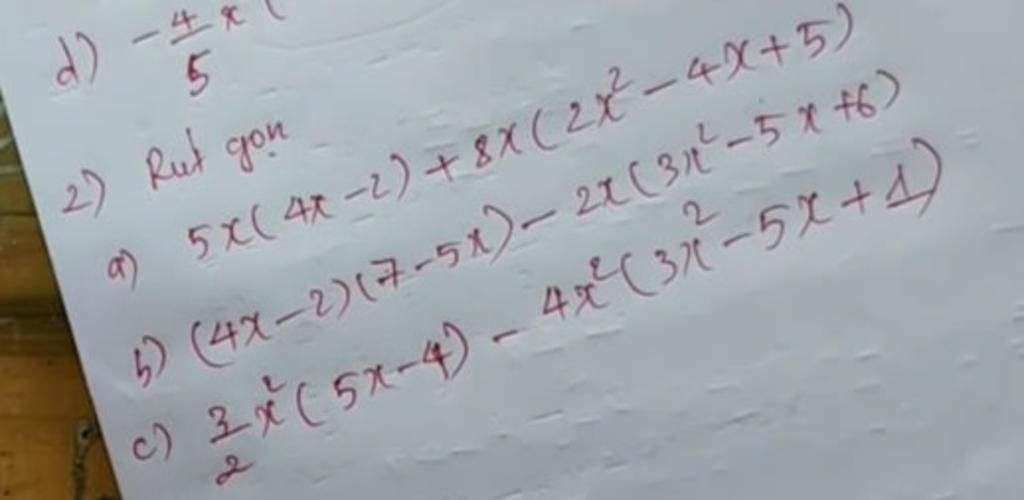 d) -4/5 x (
2) Rut gọn
a) 5x(4x-2)+8x(2x²-4x+5)
b) (4x-2)(7-5x)-2x(3x²-5x+6)
c) 3/2 x²(5x-4)-4x²(3x²-5x+1)